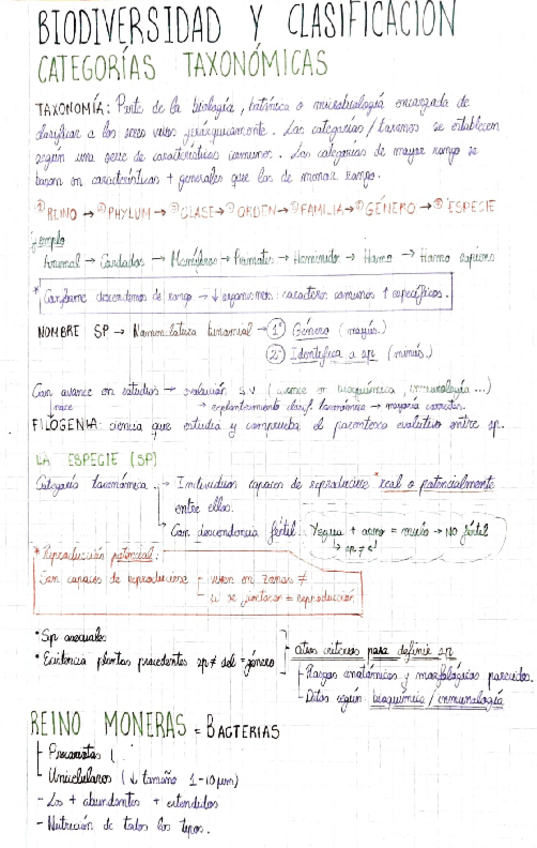 BIODIVERSIDAD Y CLASIFICACIÓN
CATEGORÍAS TAXONÓMICAS
TAXONOMÍA: Parte de la biología, botánica o microbiología encargada de
clasificar a los seres vivos jerárquicamente. Las categorías / taxones se establecen
según una serie de características comunes. Las categorías de mayor rango se
basan en características + generales que las de menor rango.
① REINO → ② PHYLUM → ③ CLASE → ④ ORDEN → ⑤ FAMILIA → ⑥ GÉNERO → ⑦ ESPECIE
Ejemplo
Animal → Cordados → Mamíferos → Primates → Homínido → Homo → Homo sapiens
* Conforme descendemos de rango → ↓ organismos: caracteres comunes ↑ específicos.
NOMBRE SP → Nomenclatura binomial → 1º Género (mayús.)
2º Identifica a sp (minús.)
Con avance en estudios → evolución s.v (avance en bioquímica, inmunología ...)
nace → replanteamiento clasif. taxonómica → mayoría correctas.
FILOGENIA: ciencia que estudia y comprueba el parentesco evolutivo entre sp.
LA ESPECIE (SP)
Categoría taxonómica → Individuos capaces de reproducirse * real o potencialmente
entre ellos.
→ Con descendencia fértil. Yegua + asno = mulo → NO fértil
↳ sp ≠ s
* Reproducción potencial:
Son capaces de reproducirse - viven en zonas ≠
- si se juntaran = reproducción
* Sp asexuales
* Existencia plantas procedentes sp ≠ del = género
otros criterios para definir sp
- Rasgos anatómicos y morfológicos parecidos.
- Datos según bioquímica / inmunología
REINO MONERAS = BACTERIAS
- Procariotas
- Unicelulares (↓ tamaño 1-10 µm)
- Los + abundantes + extendidos
- Nutrición de todos los tipos.